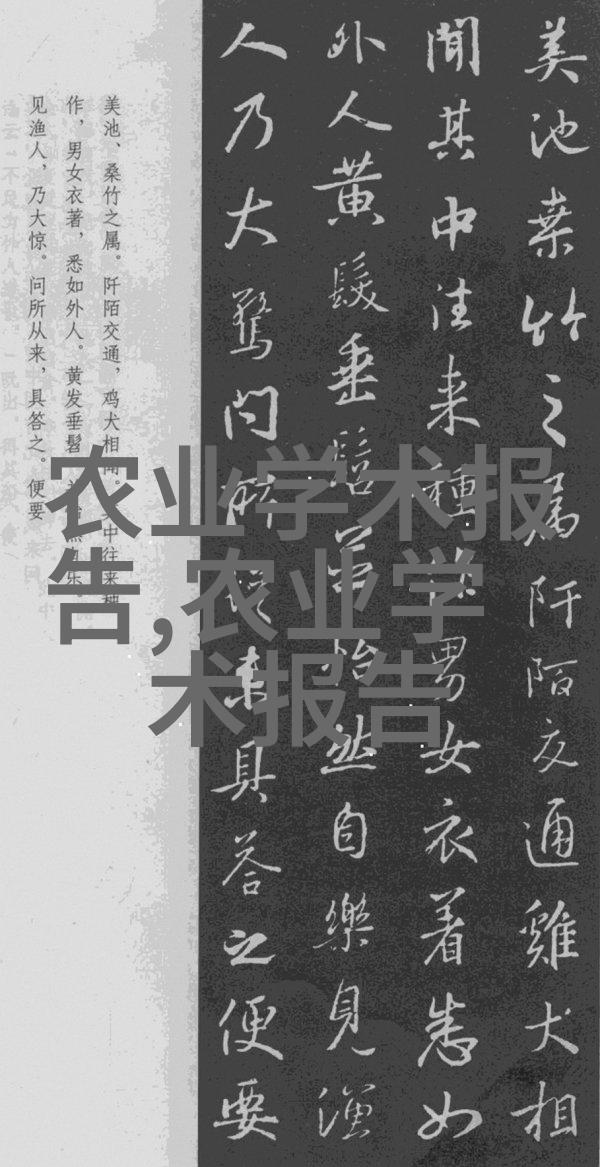 美池桒竹之属阡陌交通雞犬相
聞其中往来種作男女衣着悉如
外人黄髮垂髫並怡然自樂見漁
人乃大驚问所從来具答之便要
美池、桑竹之属。阡陌交通，鸡犬相闻。其中往来种
作，男女衣著，悉如外人。黄发垂髫，并怡然自乐。
见渔人，乃大惊。问所从来，具答之。便要
农业学术报
告,农业学
术报告